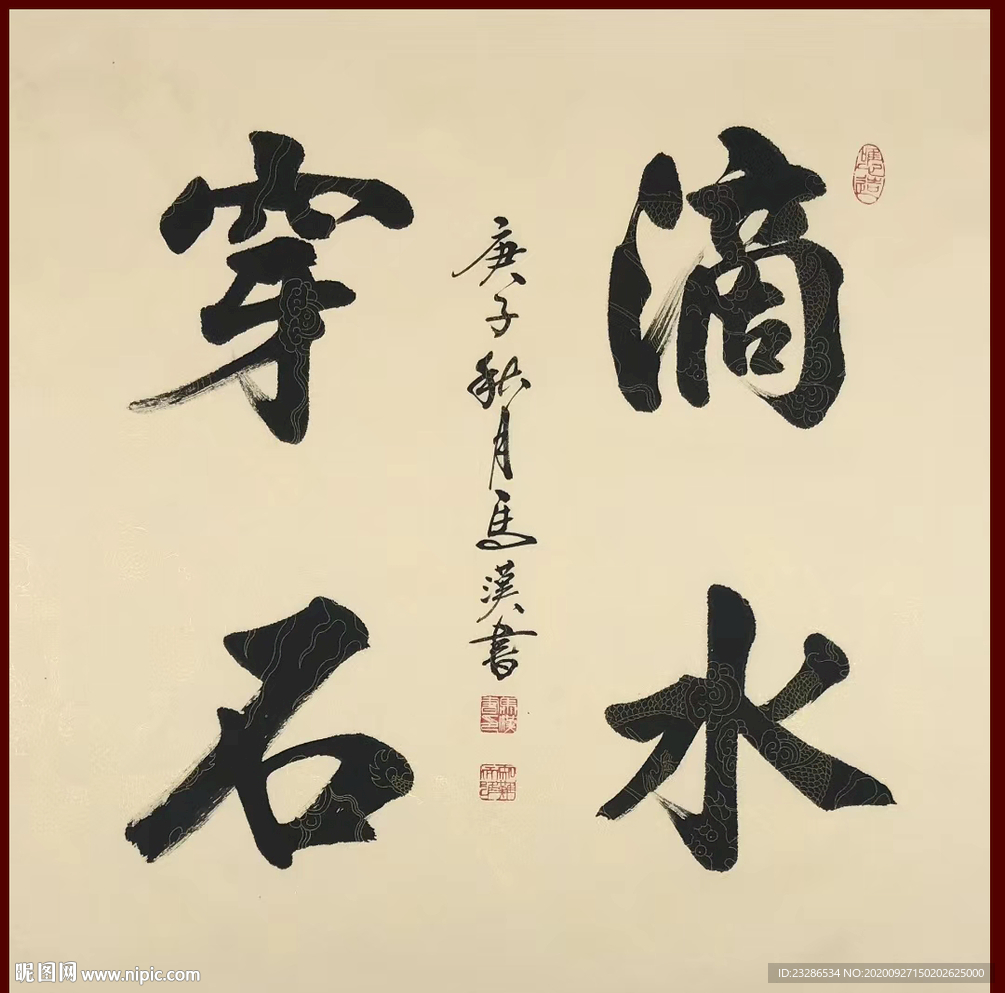 滴水
穿石
庚子秋月馬漢書
昵图网 www.nipic.com
ID:23286534 NO:20200927150202625000